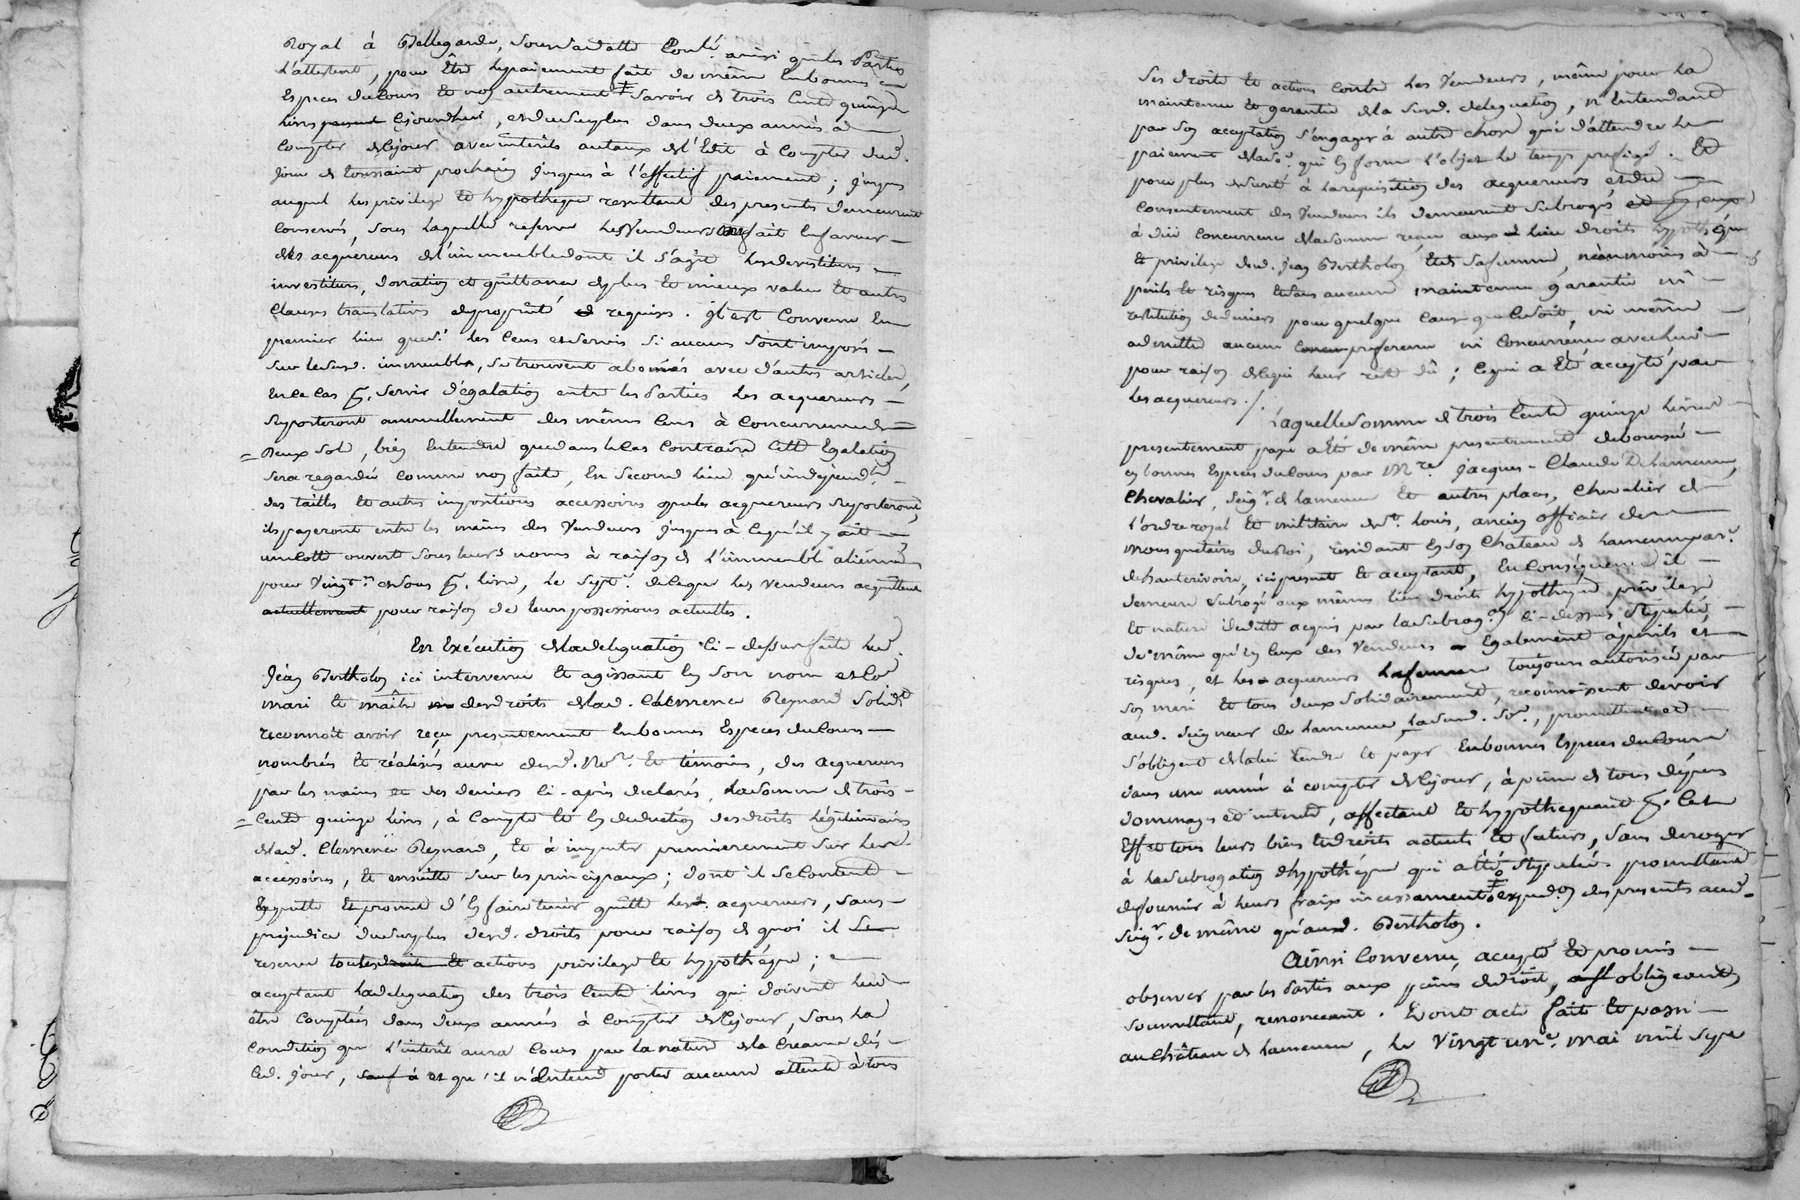 Royal à Bellegarde, soussordatte Conté ainsi que les Parties
L'attestent, pour Être lepaiement fait de même Enbonnes
Especes du Cours Et non autrement Savoir de trois Cents quinze
Livres cejourdhui, et du surplus dans deux années à
Compter dece jour avec intérêts autaux de L'Edit à Compter dud.
jour de toussaint prochain jusques à l'effectif paiement ; jusques
auquel les privilege Et hypotheque resultant des presentes demeurent
conservés, sous laquelle reserve les Vendeurs ont fait Enfaveur
des acquereurs de l'immeuble dont il s'agit les devestitures
investiture, donation et quittance de plus Et mieux value Et autres
Clauses translatives depropriété requises. il est Convenu En
premier lieu que si les Cens et servis si aucuns sont imposés
sur lesusd. immeuble, se trouvent abonnés avec d'autres articles,
En ce Cas p. servir d'égalation entre les Parties les acquereurs
supporteront annuellement des mêmes Cens à Concurrence de
Deux sols, bien Entendu que dans le Cas Contraire Cette Egalation
sera regardée comme non faite, En second lieu qu'independt.
des tailles Et autres impositions accessoires que les acquereurs supporteront
ils payeront entre les mains des Vendeurs jusques à ce qu'il y ait
une Cotte ouverte sous leurs noms à raison de l'immeuble aliéné
pour Vingt. et sous p. livre, le sept. de ceque les Vendeurs acquittent
actuellement pour raison de leurs possessions actuelles.
En Exécution de la delegation ci-dessus faite led.
Jean Bertholon ici intervenu Et agissant En son nom et Co
mari Et maître des droits de lad. Clemence Reynard solidt.
reconnoît avoir reçu presentement Enbonnes Especes du Cours
nombrés Et réalisés au vu desd. Nore. Et témoins, des acquereurs
par les mains et des deniers Ci-après declarés, la somme de trois
Cents quinze livres, à Compte Et En deduction des droits légitimaires
de lad. Clemence Reynard, Et à imputer premierement sur les
accessoires, Et ensuitte sur les principaux ; dont il se Contente
Enquitte Et promet d'En faire tenir quitte lesd. acquereurs, sans
prejudice du surplus desd. droits pour raison de quoi il se
reserve toutes droits Et actions privilege Et hypothéque ;
acceptant la delegation des trois Cents livres qui doivent lui
être Comptées dans deux années à Compter de Cejour, sous la
condition que l'intérêt aura Cours par la nature de la Creance dès
Ced. jour, sauf à et qu'il n'Entend porter aucune attente à tous
ses droits Et actions Contre les Vendeurs, même pour la
maintenue Et garantie de la susd. delegation, n'Entendant
par son acceptation s'engager à autre chose qu'à d'attendre le
paiement de la so. qui En forme l'objet le temps prefigé. Et
pour plus de sureté à la requisition des acquereurs et du
Consentement des Vendeurs ils demeurent subrogés
à düe Concurrence de la somme reçue aux lieu droits hypothéque
Et privilege dud. Jean Bertholon Et de sa femme, néanmoins à
perils Et risques Et sans aucune maintenue garantie ni
restitution de deniers pour quelque Cause que Ce soit, ni même
admettre aucune preference ni Concurrence avec lui
pour raison de Ce qui leur reste dû ; Ce qui a Eté accepté par
les acquereurs ./.
Laquelle somme de trois Cents quinze livres
presentement payé a Eté de même presentement deboursée
en bonnes Especes du Cours par Mre. Jacques-Claude De Lamenue,
Chevalier, Seigr. de Lamenue Et autres places, Chevalier de
l'ordre royal Et militaire de St. Louis, ancien officier de
mousquetaires du Roi, résidant En son Chateau de Lamenue par.
de hauterivoire, ici present Et acceptant, En Conséquence il
demeure subrogé aux mêmes lieu droits hypotheque privilege
Et nature de dette acquis par la subrog.on Ci-dessus stipulée,
de même qu'En Ceux des Vendeurs Egalement à perils et
risques, et les acquereurs la femme toujours autorisée par
son mari Et tous deux solidairement, reconnoissent devoir
aud. Seigneur de Lamenue, la susd. so., promettent et
s'obligent de la lui rendre Et payer Enbonnes Especes du Cours
dans une année à compter de Cejour, à peine de tous dépens
dommages et interets, affectant Et hypothequant p. Cet
Effet tous leurs biens Et droits actuels Et futurs, sans deroger
à la subrogation d'hypothéque qui a été stipulée promettant
de fournir à leurs fraix incessament expedon. des presentes aud.
Seigr. de même qu'aud. Bertholon.
Ainsi Convenu, accepté Et promis
observer par les Parties aux peines de droit, obligeant
soumettant, renonceant. Dont acte fait Et passé
au Château de Lamenue, le Vingt une. mai mil sept